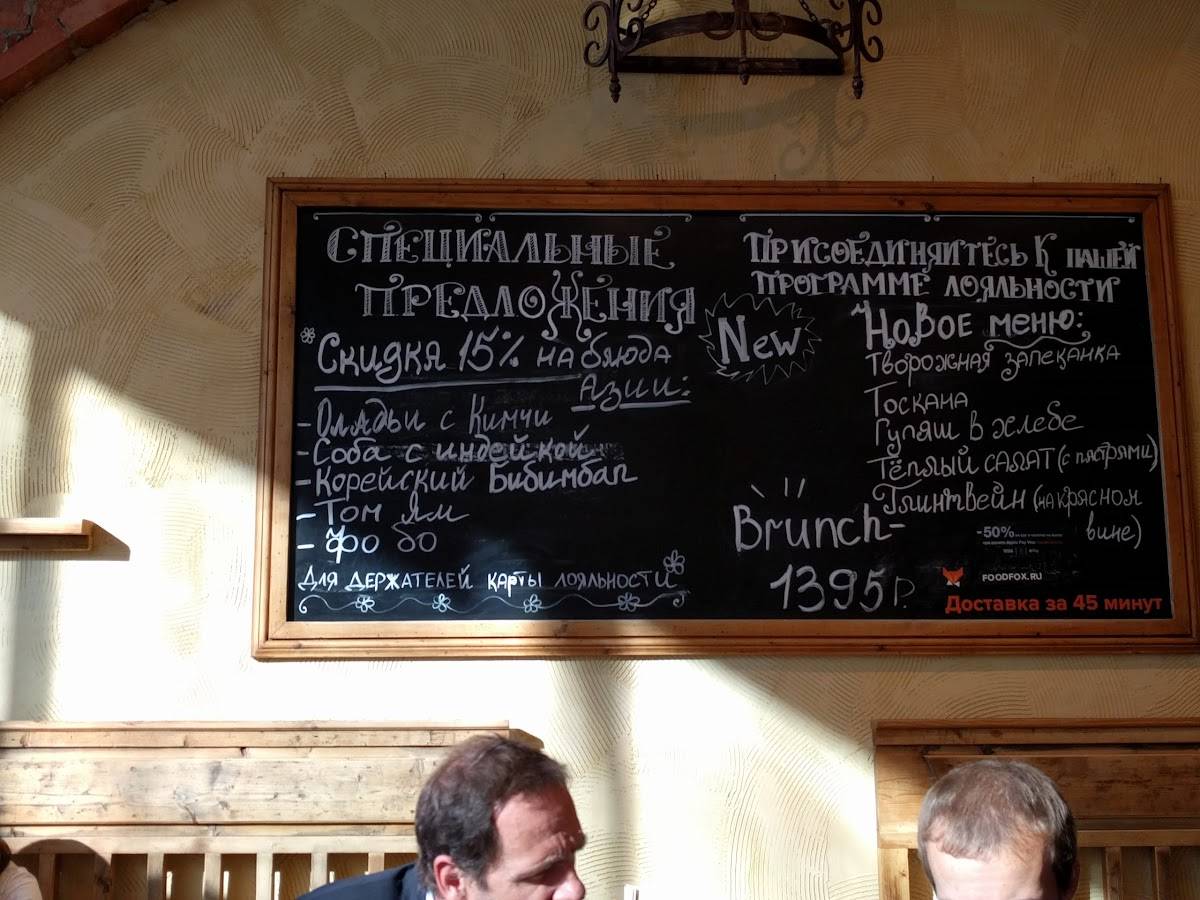 СПЕЦИАЛЬНЫЕ
ПРЕДЛОЖЕНИЯ
Скидка 15% на блюда
Азии:
- Оладьи с Кимчи
- Соба с индейкой
- Корейский Бибимбап
- Том Ям
- Фо бо
Для держателей карты лояльности
ПРИСОЕДИНЯЙТЕСЬ К НАШЕЙ
ПРОГРАММЕ ЛОЯЛЬНОСТИ
New
Новое меню:
Творожная запеканка
Тоскана
Гуляш в хлебе
Тёплый салат (с пястрями)
Глинтвейн (на красном
вине)
Brunch-
1395 Р.
-50%
FOODFOX.RU
Доставка за 45 минут